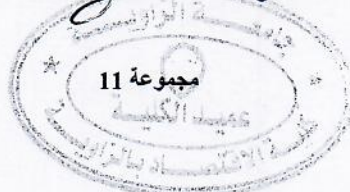 جامعة الزاويـــة
مجموعة 11
عميد الكليـــة
كلية الاقتصاد بالزاويـــة